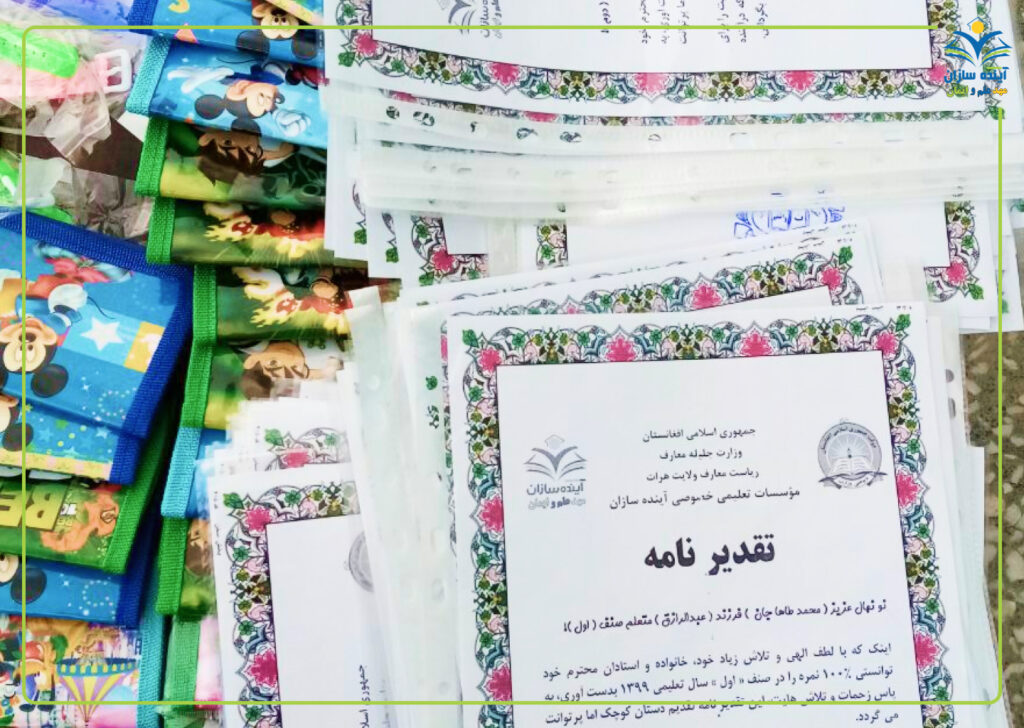 آینده سازان
مهد علم و ایمان
جمهوری اسلامی افغانستان
وزارت جلیله معارف
ریاست معارف ولایت هرات
مؤسسات تعلیمی خصوصی آینده سازان
آینده سازان
مهد علم و ایمان
تقدیر نامه
نو نهال عزیز ( محمد طاها جان ) فرزند ( عبدالرازق ) متعلم صنف ( اول )!
اینک که با لطف الهی و تلاش زیاد خود، خانواده و استادان محترم خود
توانستی ۱۰۰٪ نمره را در صنف « اول » سال تعلیمی ۱۳۹۹ بدست آوری، به
پاس زحمات و تلاش هایت، این تقدیر نامه تقدیم دستان کوچک اما پرتوانت
می گردد.
BE